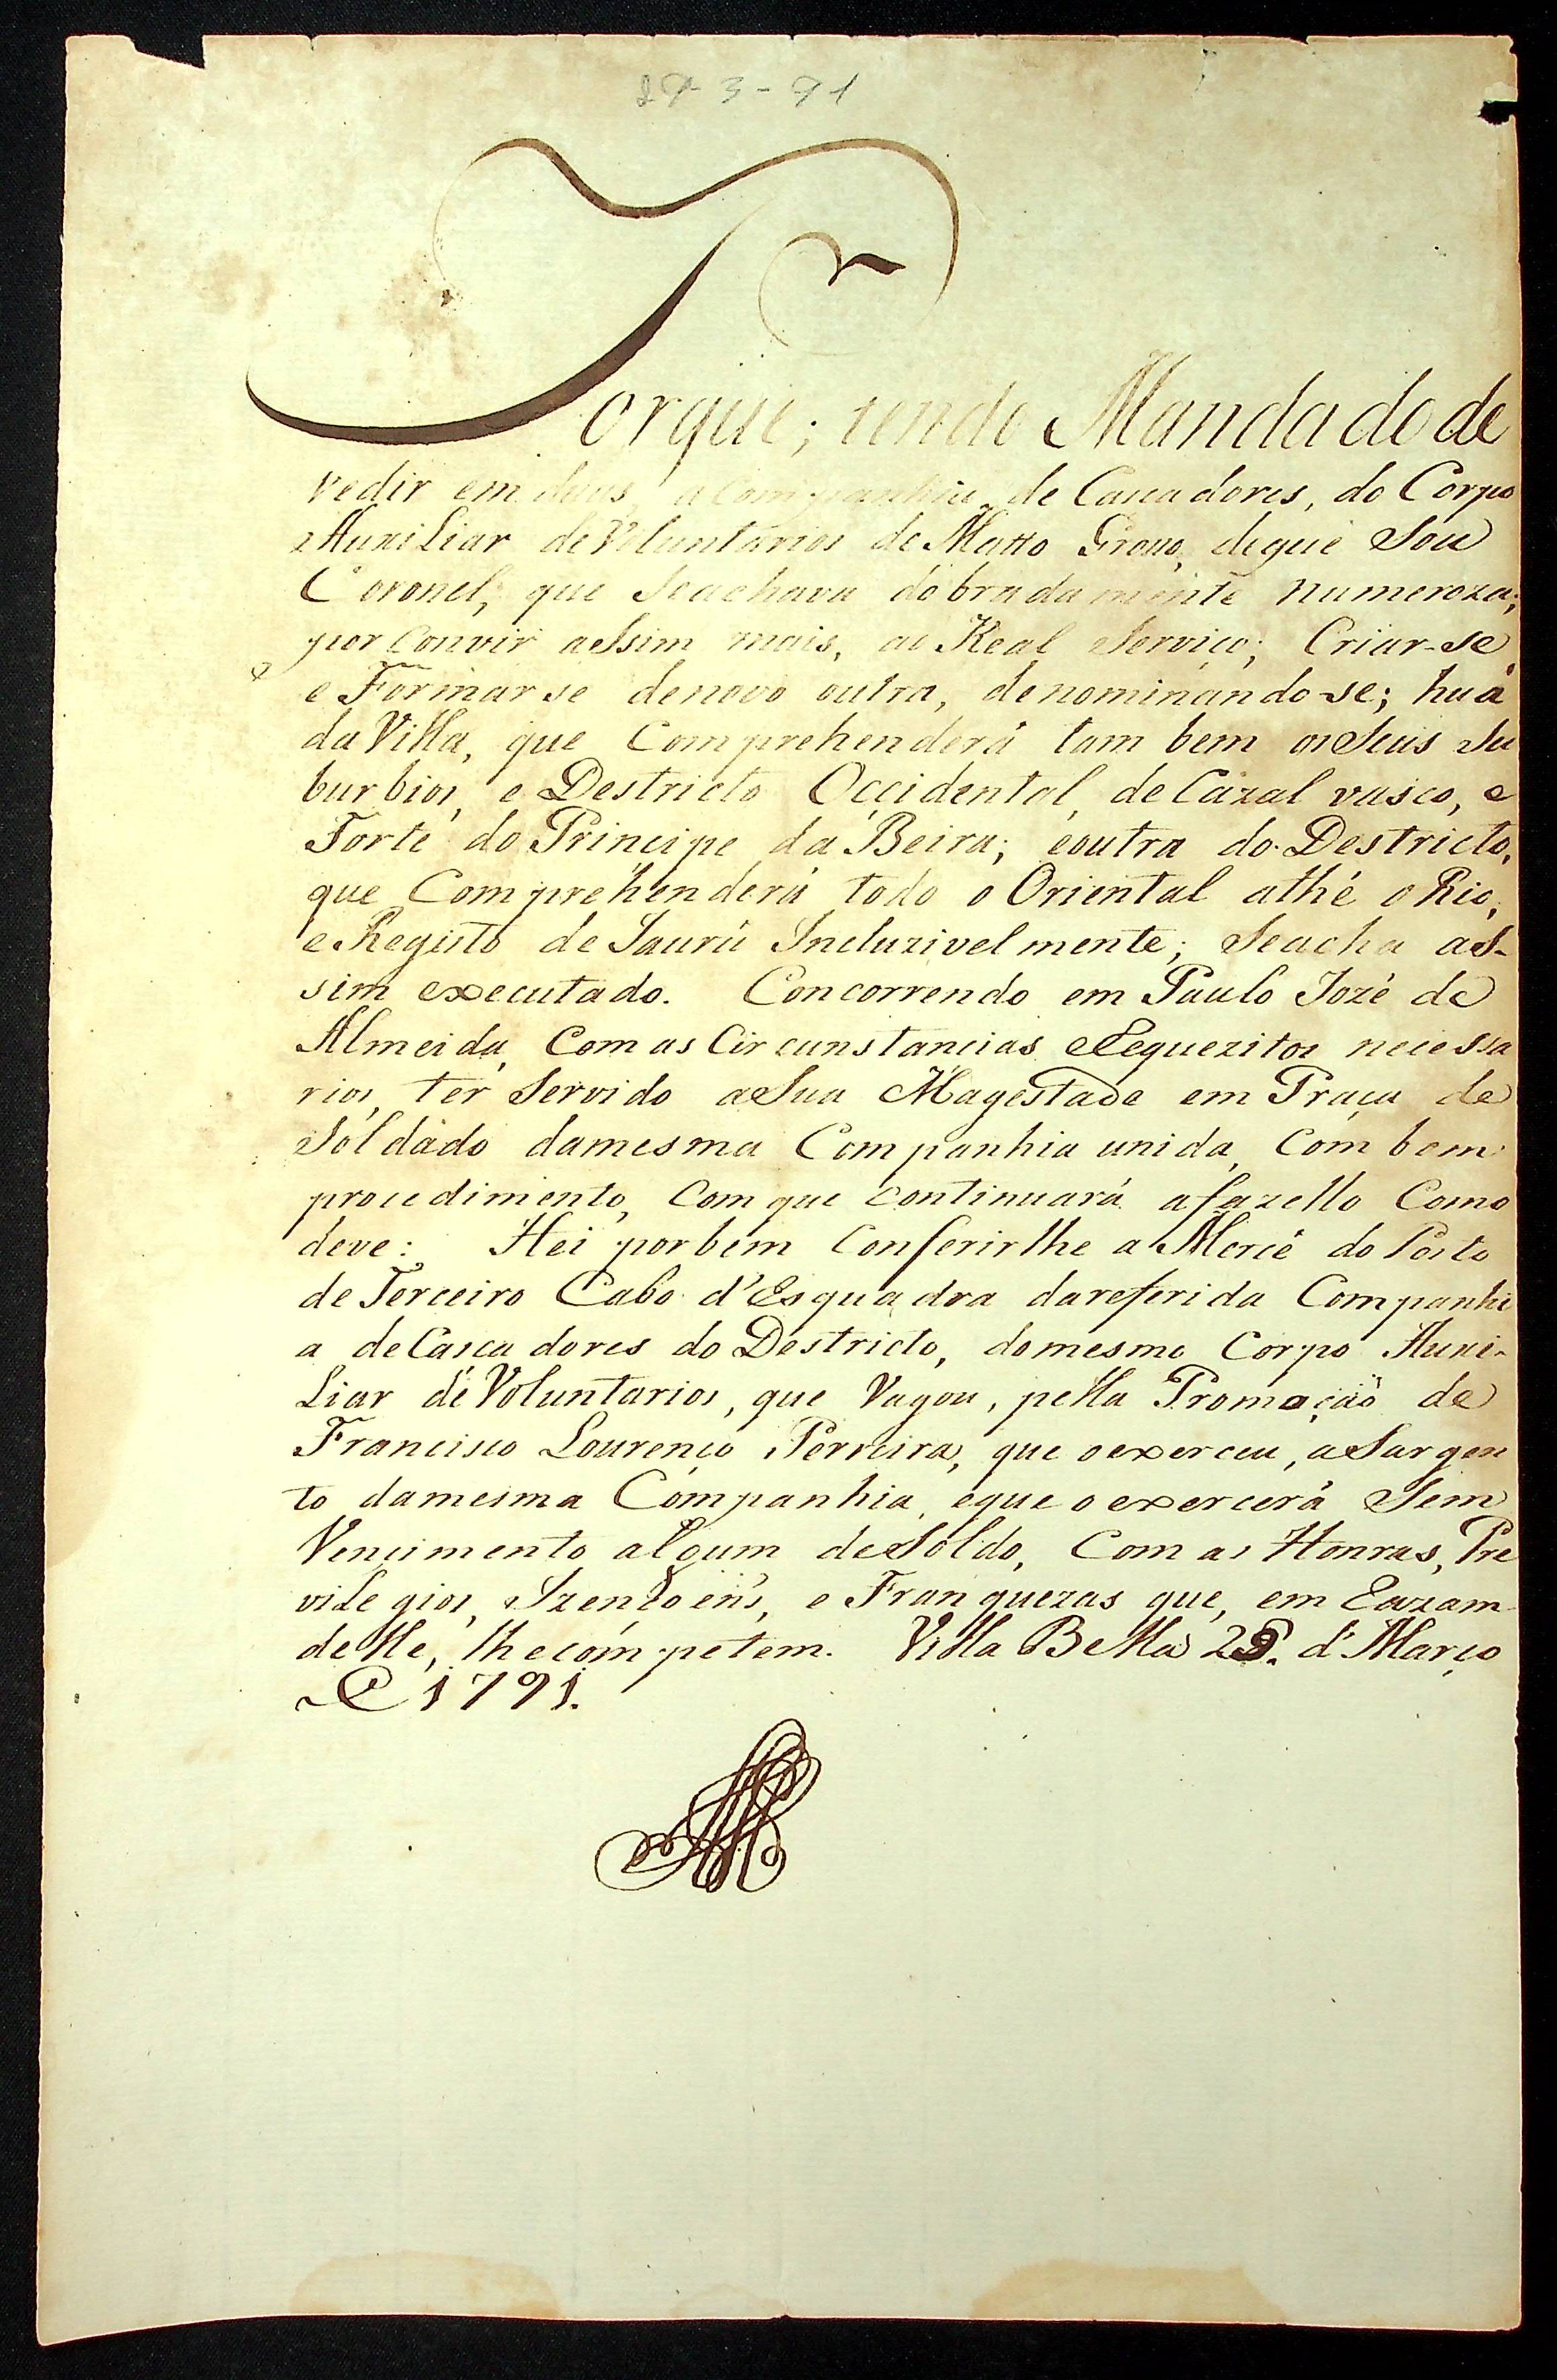 29-3-91
Porque; tendo Mandado de
vedir em duas, a Companhia, de Cassadores, do Corpo
Auxiliar de Voluntarios de Matto Grosso, deque Sou
Coronel; que Seachava dobradamente numeroza;
por Convir asSim mais, ao Real Serviço; Criar-se,
e Formarse denovo outra, denominando-se; huã
da Villa, que Comprehenderá tam bem osSeus Su
burbios, e Destricto Occidental, de Cazal vasco, e
Forte do Principe da Beira; eoutra do Destricto,
que Comprehenderá todo o Oriental athé o Rio,
e Registo de Jaurú Incluzivelmente; Seacha as-
sim executado. Concorrendo em Paulo Jozé de
Almeida, Com as Circunstancias eRequezitos necessa
rios, ter Servido aSua Magestade em Praça de
Soldado damesma Companhia unida, Com bom
procedimento, Com que Continuará afazello Como
deve: Hei porbem Conferirlhe a Mercê do Posto
de Terceiro Cabo d'Esquadra dareferida Companhi
a deCassadores do Destricto, domesmo Corpo Auxi-
Liar de Voluntarios, que Vagou, pella Promoção de
Francisco Lourenço Perreira, que oexerceu, aSargen
to damesma Companhia, eque oexercerá Sem
Vencimento algum deSoldo, Com as Honras, Pre
vilegios, Izençoens, e Franquezas que, em Razam
delle, lhecompetem. Villa Bella 29. d' Março
de 1791.